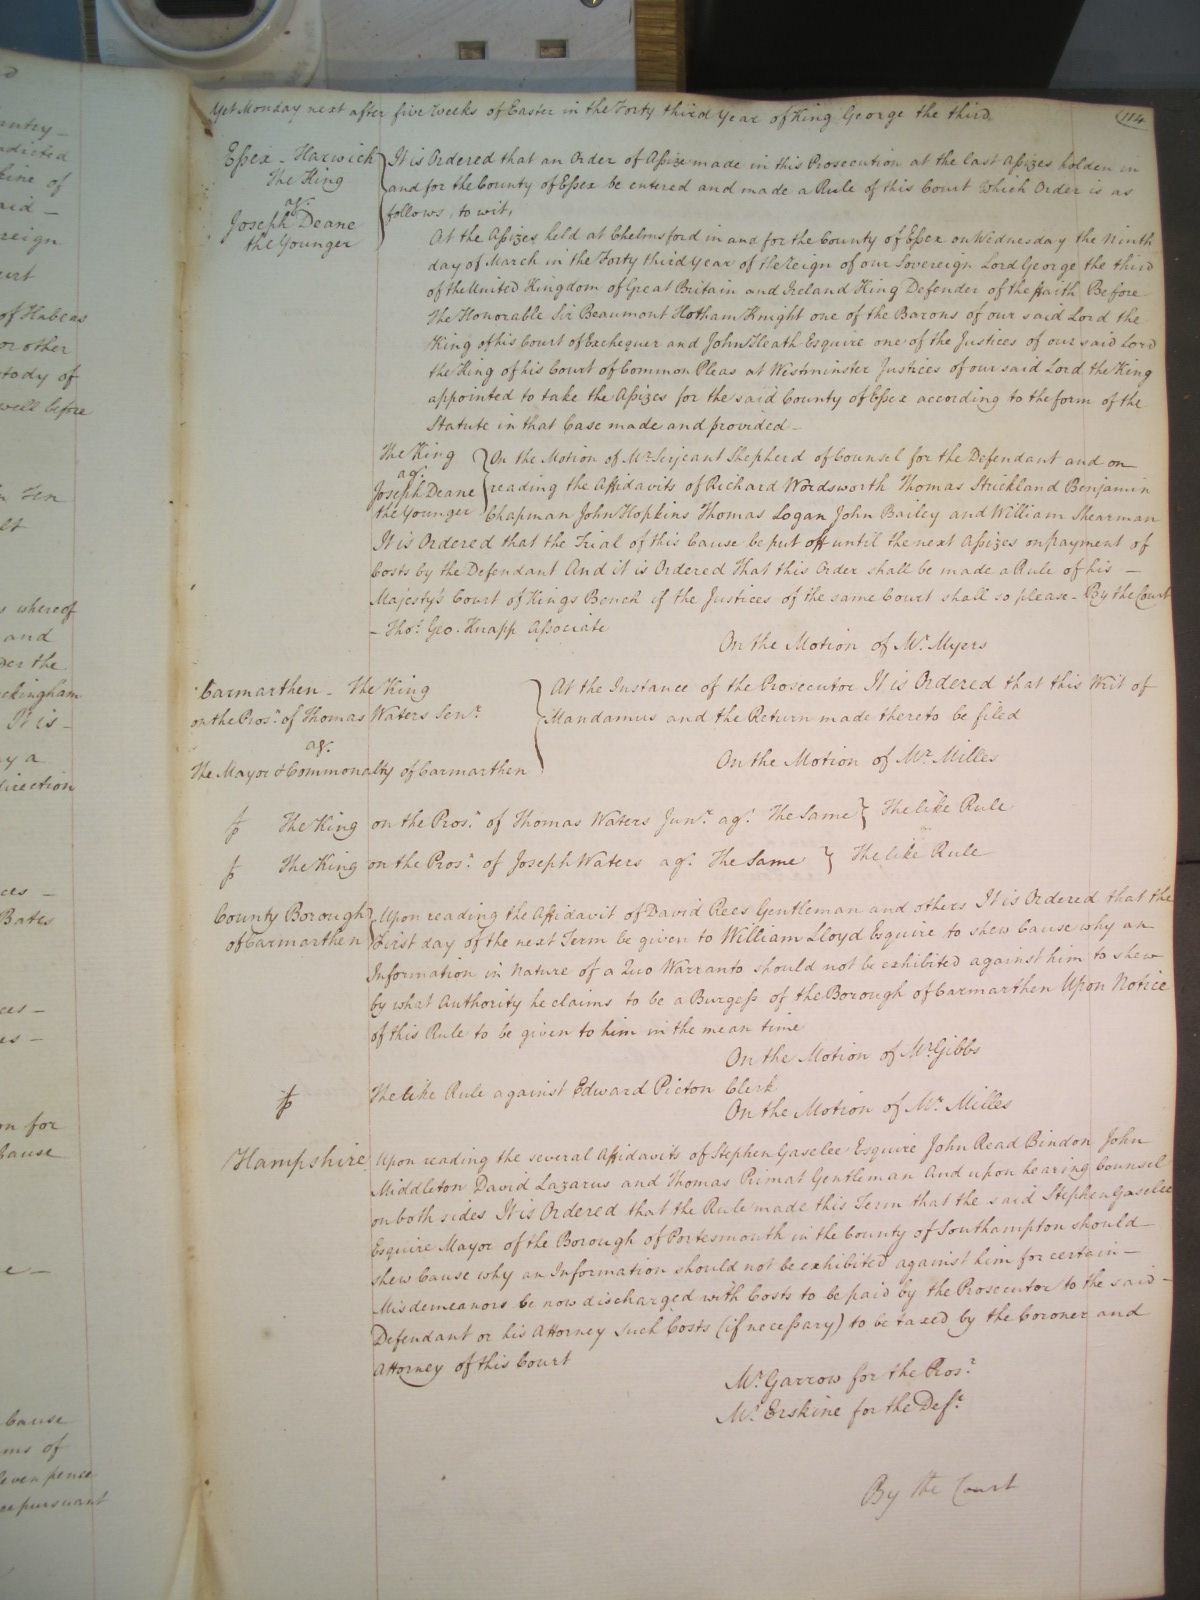 Yet Monday next after five Weeks of Easter in the Forty third Year of King George the third
114
Eßex - Harwich
The King
agt.
Joseph Deane
the Younger
It is Ordered that an Order of Aßize made in this Prosecution at the last Aßizes holden in
and for the County of Eßex be entered and made a Rule of this Court Which Order is as
follows, to wit,
At the Aßizes held at Chelmsford in and for the County of Eßex on Wednesday the Ninth
day of March in the Forty third Year of the Reign of our Sovereign Lord George the third
of the United Kingdom of Great Britain and Ireland King Defender of the Faith Before
The Honorable Sir Beaumont Hotham Knight one of the Barons of our said Lord the
King of his Court of Exchequer and John Heath Esquire one of the Justices of our said Lord
the King of his Court of Common Pleas at Westminster Justices of our said Lord the King
appointed to take the Aßizes for the said County of Eßex according to the form of the
Statute in that Case made and provided -
The King
agt.
Joseph Deane
the Younger
On the Motion of Mr. Serjeant Shepherd of Counsel for the Defendant and on
reading the Affidavits of Richard Wordsworth Thomas Strickland Benjamin
Chapman John Hopkins Thomas Logan John Bailey and William Shearman
It is Ordered that the Trial of this Cause be put off until the next Aßizes on payment of
Costs by the Defendant And it is Ordered That this Order shall be made a Rule of his -
Majesty's Court of Kings Bench if the Justices of the same Court shall so please - By the Court
- Thos. Geo. Knapp Aßociate
On the Motion of Mr. Myers
Carmarthen - The King
on the Prosn. of Thomas Waters Senr.
agt.
The Mayor & Commonalty of Carmarthen
At the Instance of the Prosecutor It is Ordered that this Writ of
Mandamus and the Return made thereto be filed
On the Motion of Mr. Milles
The King on the Prosn. of Thomas Waters Junr. agt. The Same } The like Rule
The King on the Prosn. of Joseph Waters agt. The Same } The like Rule
County Borough
of Carmarthen
Upon reading the Affidavit of David Rees Gentleman and others It is Ordered that the
First day of the next Term be given to William Lloyd Esquire to shew Cause why an
Information in Nature of a Quo Warranto should not be exhibited against him to shew
by what Authority he claims to be a Burgeß of the Borough of Carmarthen Upon Notice
of this Rule to be given to him in the mean time
On the Motion of Mr. Gibbs
The like Rule against Edward Picton Clerk
On the Motion of Mr. Milles
Hampshire
Upon reading the several Affidavits of Stephen Gaselee Esquire John Read Bindon John
Middleton David Lazarus and Thomas Rimat Gentleman And upon hearing Counsel
on both sides It is Ordered that the Rule made this Term that the said Stephen Gaselee
Esquire Mayor of the Borough of Portesmouth in the County of Southampton should -
shew Cause why an Information should not be exhibited against him for certain -
Misdemeanors be now discharged with Costs to be paid by the Prosecutor to the said -
Defendant or his Attorney such Costs (if neceßary) to be taxed by the Coroner and
Attorney of this Court
Mr. Garrow for the Prosr.
Mr. Erskine for the Deft.
By the Court